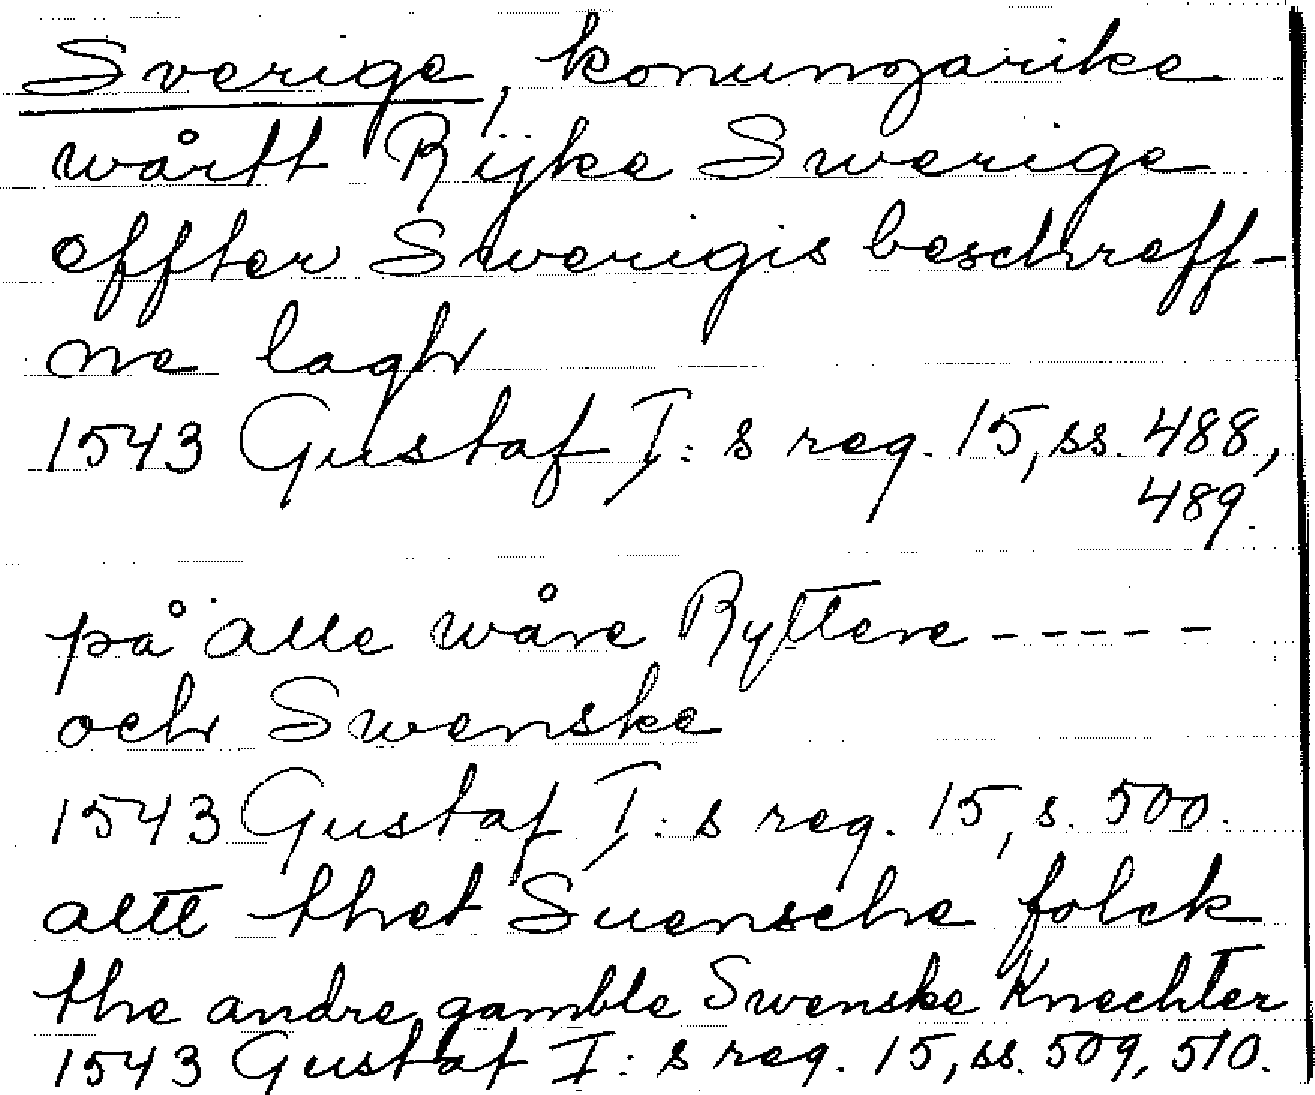 Sverige, konungarike
wårtt Rijke Swerige
effter Swerigis beschreff-
ne lagh
1543 Gustaf I:s reg. 15, ss. 488,
489.
på alle wåre Ryttere -----
och Swenske
1543 Gustaf I:s reg. 15, s. 500.
altt thet Suensche folck
the andre gamble Swenske Knechter
1543 Gustaf I:s reg. 15, ss. 509, 510.